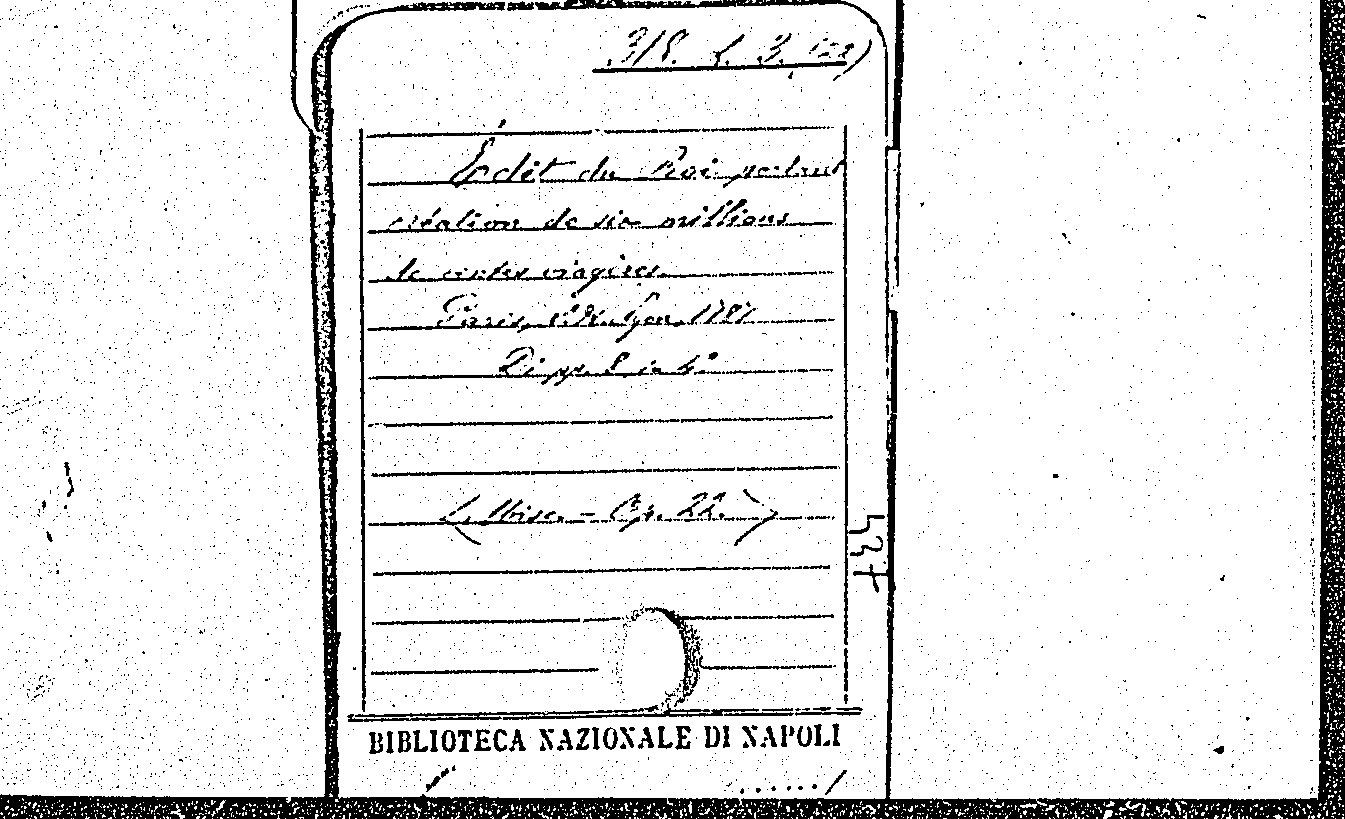 318. L. 3. (22)
Édit du Roi portant
création de six millions
de rentes viagères
Paris, Lyon, 1787
Di pp. 8 in 4°
(Misc. - Op. 22.)
437
BIBLIOTECA NAZIONALE DI NAPOLI